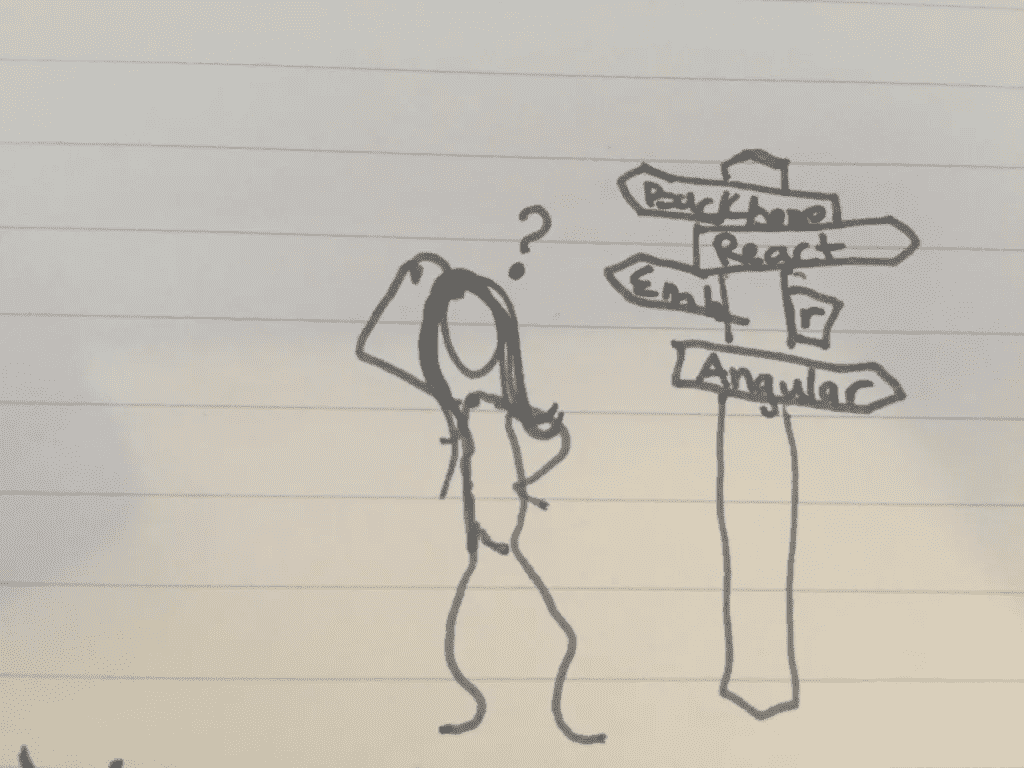 ?
Backbone
React
Emb r
Angular